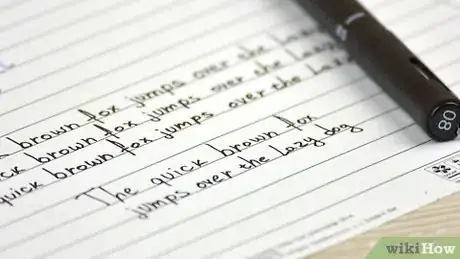 brown fox jumps over the
brown fox jumps over the
quick brown fox jumps over the Lazy
The quick brown fox
jumps over the Lazy dog
80
wikiHow